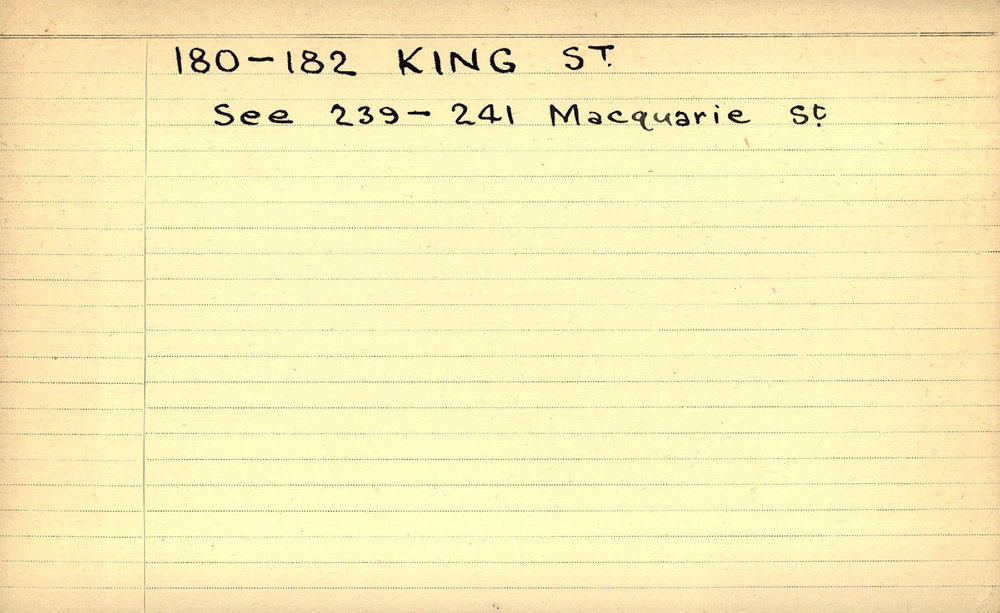 180-182 KING ST.
See 239-241 Macquarie St.